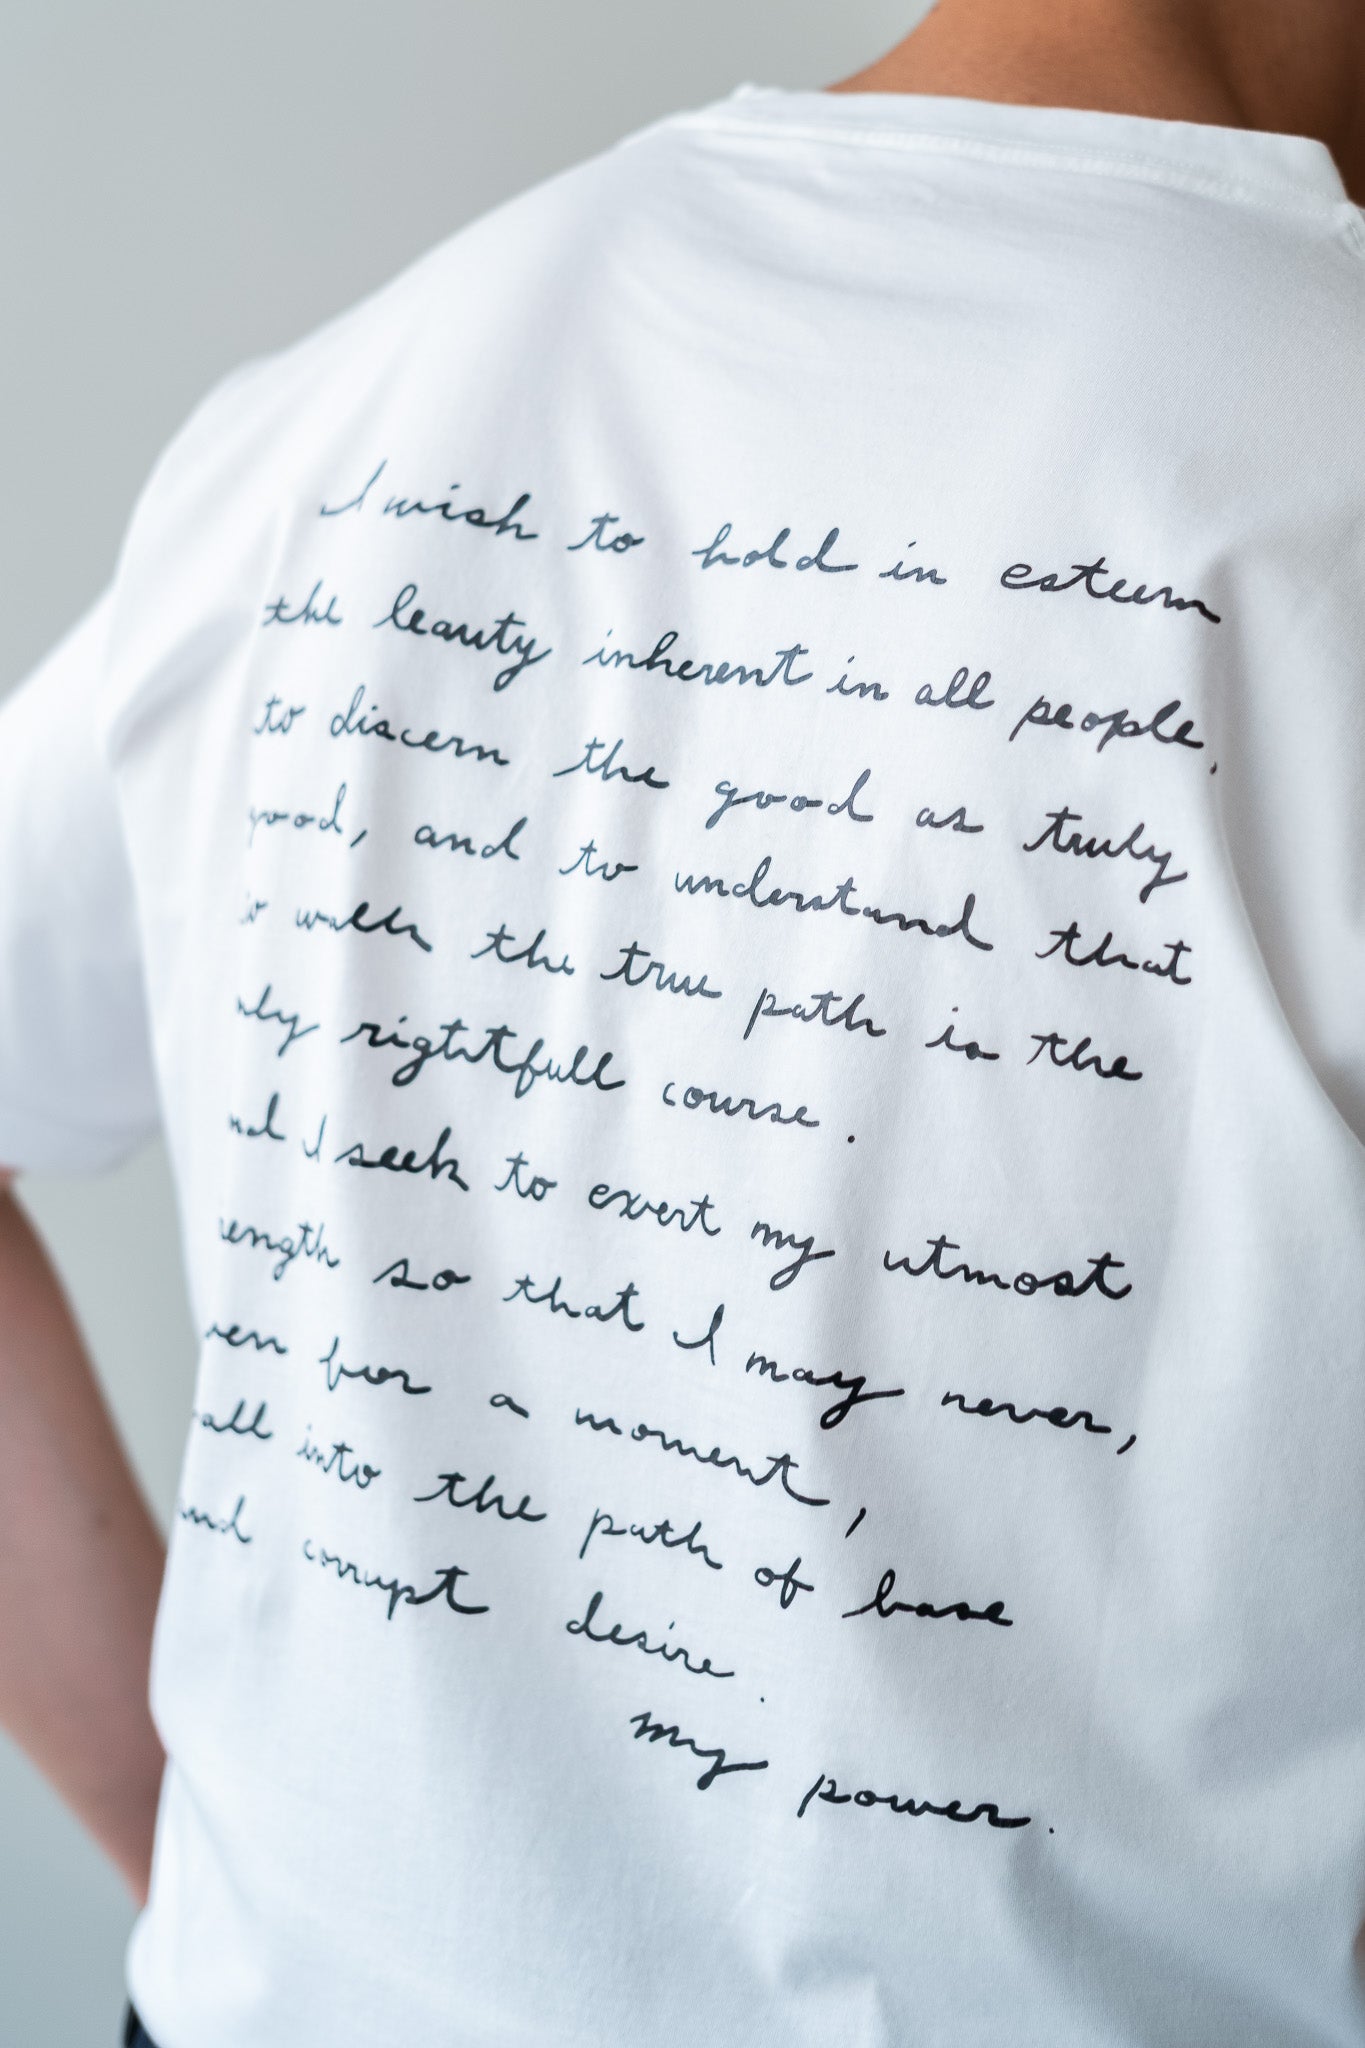 I wish to hold in esteem
the beauty inherent in all people,
to discern the good as truly
good, and to understand that
to walk the true path is the
nly rightfull course.
nd I seek to exert my utmost
rength so that I may never,
ven for a moment,
all into the path of base
and corrupt desire.
my power.